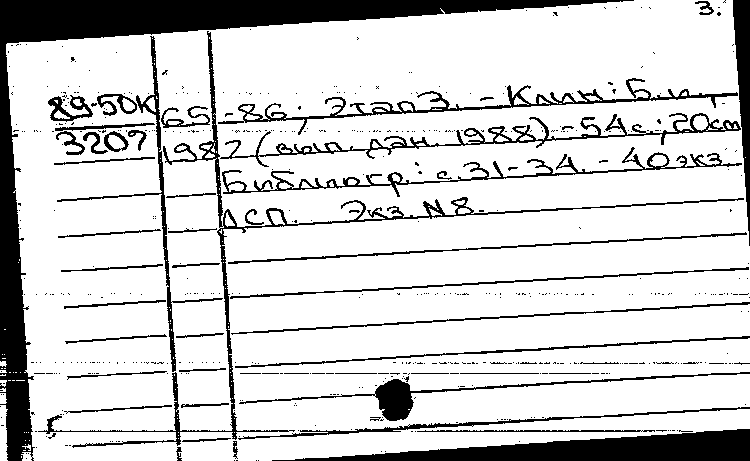 3.
89-50К 65-86; Этап 3. - Клин: Б.и.,
3207 1987 (вып. дан. 1988). - 54с; 20см
Библиогр.: с. 31-34. - 40 экз.
ДСП. Экз. N 8.